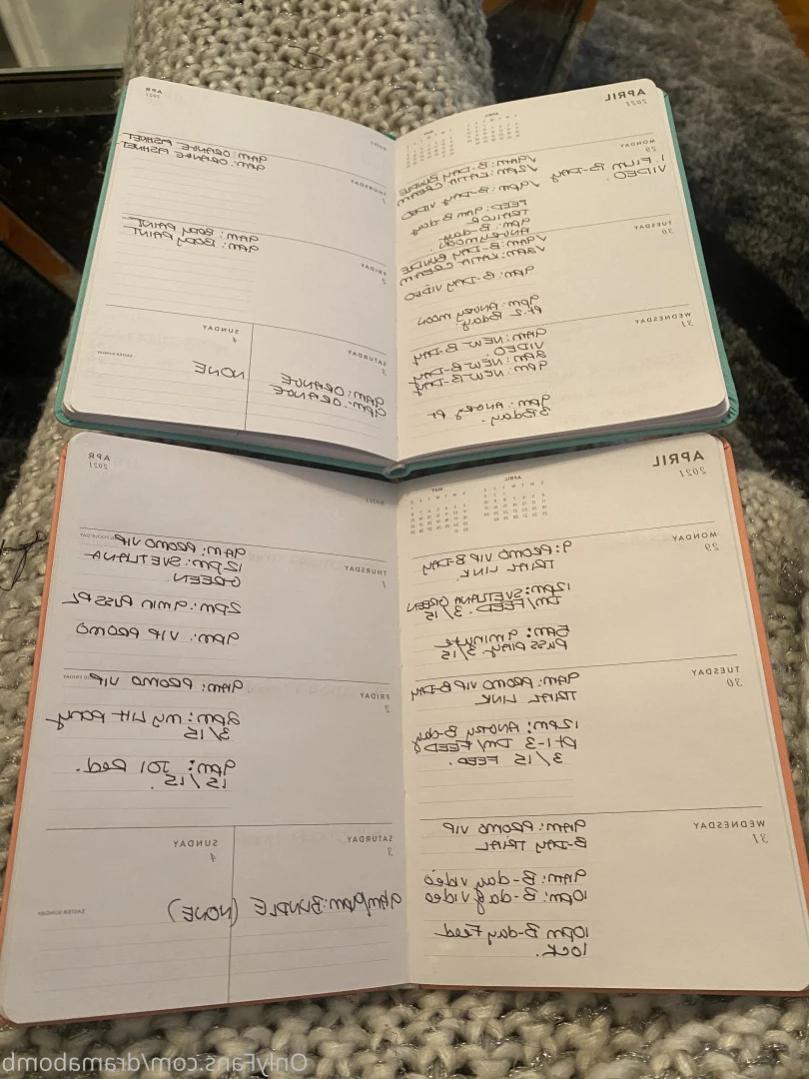 APRIL
2021
MONDAY
29
1 FILM B-DAY
VIDEO
9AM: B-DAY BUNDLE
12AM: KATIA CREAM
9pm: B-DAY VIDEO
FEED: 9um B day
TRAILOR
9pm: B-day
TUESDAY
30
9AM: B-DAY BUNDLE
12AM: KATIA CREAM
9pm B-DAY VIDEO
9pm: Andrey moon
pt. 2 Bday:
WEDNESDAY
31
9AM: NEW B-DAY
VIDEO:
9pm: NEW B-DAY
9pm: Andrey pt
3 Bday.
APR
2021
THURSDAY
1
9AM: ORANGE FISHNET
9pm: ORANGE FISHNET
FRIDAY
2
9AM: BODY PAINT
9pm: BODY PAINT
SATURDAY
3
9AM: ORANGE
9pm: ORANGE
SUNDAY
4
EASTER SUNDAY
NONE
APRIL
2021
MONDAY
29
9: PROMO VIP B-DAY
TRIAL LINK
12pm: SVETLANA GREEN
DM/FEED. 3/15
5pm: 9 minute
3/15
TUESDAY
30
9AM: PROMO VIP B-DAY
TRIAL LINK
12pm: Andrey B-day
pt 1-3 DM/FEED
3/15 FEED.
WEDNESDAY
31
9AM: PROMO VIP
B-DAY TRIAL
9AM: B-day video
10pm: B-day video
10pm B-day Feed
lock.
APR
2021
THURSDAY
1
9AM: PROMO VIP
12pm: SVETLANA
GREEN
2pm: 9min
9pm: VIP PROMO
FRIDAY
2
9AM: PROMO VIP
2pm: my lit body
3/15
9pm: JOI Red.
15/15.
SATURDAY
3
9AM/9pm: BUNDLE
SUNDAY
4
EASTER SUNDAY
(NONE)
OnlyFans.com/dramabomb